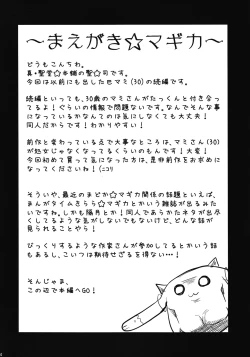 ～まえがき☆マギカ～
どうもこんちわ。
真・聖堂☆本舗の聖☆司です。
今回は以前にも出した巴マミ(30)の続編です。
続編といっても、30歳のマミさんがたっくんと付き合
ってるよ！ぐらいの情報で問題ないです。なんでそんな事
になっているかなんてのは気にしなくても大丈夫！
同人だからです！わかりやすい！
前作と変わっている点で大事なところは、マミさん(30)
が処女じゃなくなってるくらいのもんです！大変！
今回初めて買って気になった方は、是非前作をお求めに
なってください！(ニコリ
そういや、最近のまどか☆マギカ関係の話題といえば、
まんがタイムきらら☆マギカとかいう雑誌が出るみたい
ですね。しかも隔月とか！同人であらかたネタが出尽く
してるような気がしないでもないけど、どんな話が
見られることやら！
びっくりするような作家さんが参加してるとかいう話
もあるし、こいつは期待せざるを得ない…！
そんじゃま、
この辺で本編へGO！